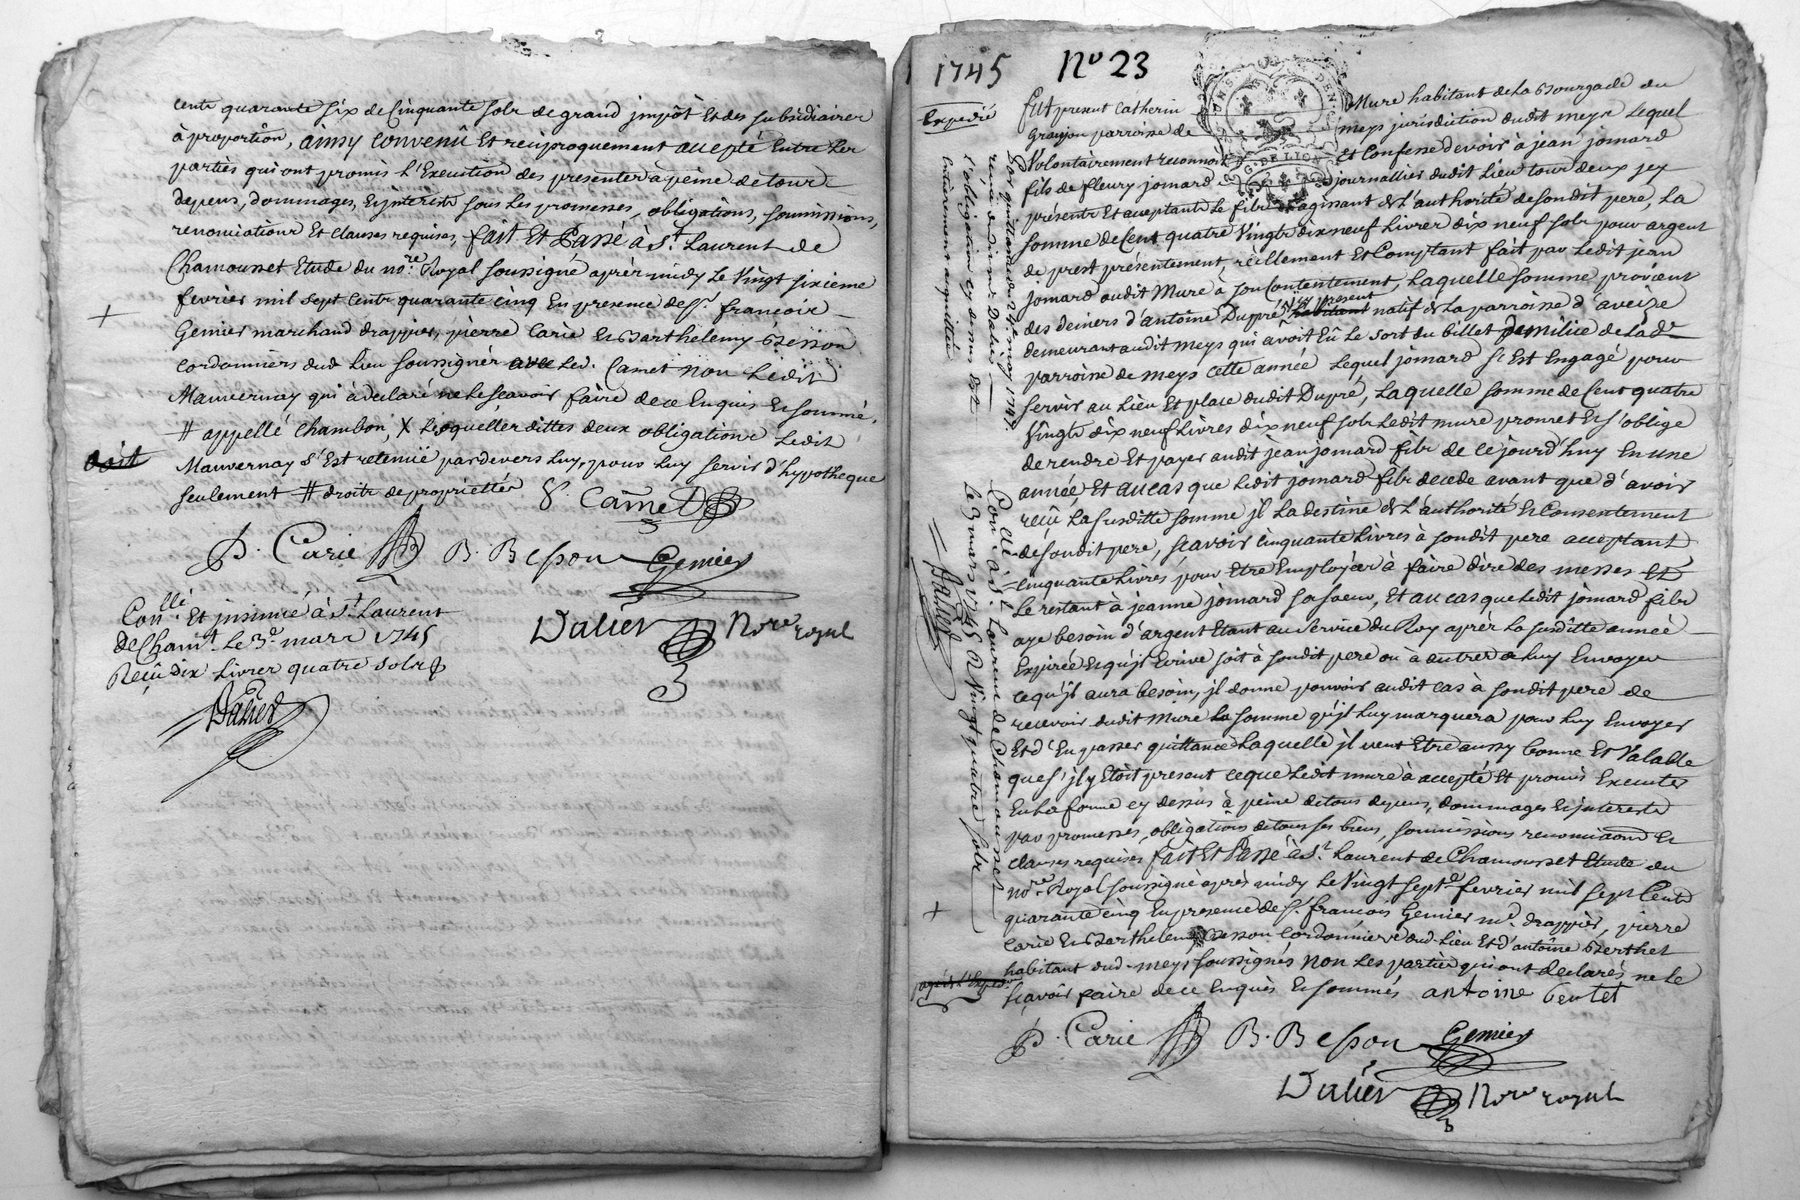 cents quarante six de Cinquante sols de grand impôt et des subsidiaires
à proportion, ainsy convenû Et reciproquement accepté Entre les
parties qui ont promis l'Execution des presentes à peine de tous
depens, dommages, Et interests sous Les promesses, obligations, soumissions,
renonciations Et clauses requises, fait Et Passé à St. Laurent de
Chamousset Etude du no.re Royal soussigné après midy Le Vingt sixieme
fevrier mil sept Cents quarante cinq En presence de Sr. françois
Gemier marchand drappier, pierre Carie Et Barthelemy Besson
cordonniers dud. Lieu soussignés avec Led. Camet non Ledit
Mauvernay qui à declaré ne le scavoir faire de ce Enquis Et sommé,
# appellé Chambon, X Lesquelles dittes deux obligations Ledit
Mauvernay s'Est retenüe pardevers Luy, pour Luy servir d'hypotheque
seulement # droits de proprietté
Camet
P. Carie B. Besson Gemier
Dalier No.re royal
Con.llé Et insinué à St. Laurent
De Cham.t Le 3e. mars 1745
Reçû dix Livres quatre sols
Dalier
1745 No 23
Expedié
fut present Catherin Mure habitant de La Bourgade du
Grayjou parroisse de Meys jurisdiction dudit Meys Lequel
Volontairement reconnoit Et Confesse devoir à jean jomard
fils de fleury jomard journallier dudit Lieu tous deux jcy
présents Et acceptants Le fils agissant de L'authorité de sondit pere, La
somme de Cent quatre Vingts dix neuf Livres dix neuf sols pour argent
de prest présentement, réellement Et Comptant fait par Ledit jean
jomard audit Mure à son Contentement, Laquelle somme provient
des deniers d'antoine Dupré jcy present natif de La parroisse d'aveize
demeurant audit meys qui avoit Eû Le sort du billet de milice de Lad.
parroisse de meys cette année Lequel jomard s'Est Engagé pour
servir au Lieu Et place dudit Dupré, Laquelle somme de Cent quatre
Vingts dix neuf Livres dix neuf sols Ledit mure promet Et s'oblige
de rendre Et payer audit jean jomard fils de ce jourd'huy En une
année, Et au cas que Ledit jomard fils decede avant que d'avoir
reçû La susditte somme jl La destine de L'authorité Et Consentement
de sondit pere, scavoir cinquante Livres à sondit pere acceptant
cinquante Livres pour Etre Employées à faire dire des messes Et
Le restant à jeanne jomard sa soeur, Et au cas que Ledit jomard fils
aye besoin d'argent Etant au service du Roy après La susditte année
Expirée Et qu'jl Ecrive soit à sondit pere ou à autres de Luy Envoyer
ce qu'jl aura besoin, jl donne pouvoir audit cas à sondit pere de
recevoir dudit Mure La somme qu'jl Luy marquera pour Luy Envoyer
Et d'En passer quittance Laquelle jl veut Etre aussy bonne Et Valable
que s'jl y Etoit present ce que Ledit mure à accepté Et promis Executer
En La forme cy dessus à peine de tous depens, dommages Et jnterests
par promesses, obligations de tous ses biens, soumissions renonciaons Et
clauses requises fait Et Passé à St. Laurent de Chamousset Etude du
no.re Royal soussigné après midy Le Vingt sept.e fevrier mil sept Cents
quarante cinq En presence de Sr. françois Gemier md. drappier, pierre
Carie Et Barthelemy Besson Cordonniers dud. Lieu Et d'antoine Berthet
habitant dud. meys soussignés non Les parties qui ont declarés ne le
scavoir faire de ce Enquis Et sommés antoine bertet
P. Carie B. Besson Gemier
Dalier No.re royal
Par quittance du 24e. may 1747
receüe dudit no.re Dalier
L'obligation cy dessus Est
Entierement acquittée
Con.llé à St. Laurent de Chamousset
Le 3 mars 1745 R. Vingt quatre sols
Dalier